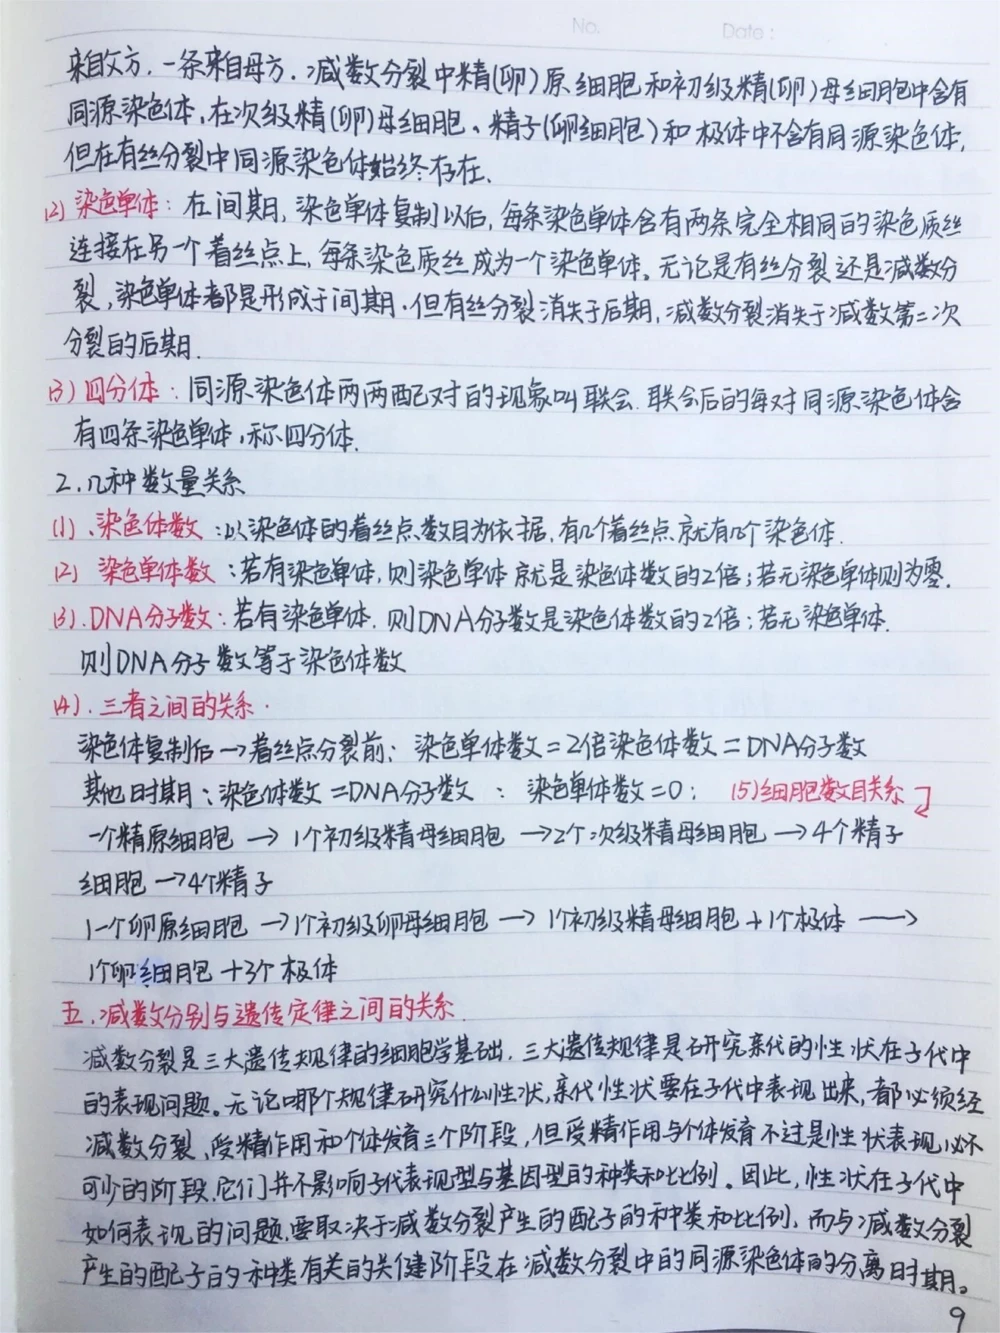 No.
Date:
来自父方,一条来自母方.减数分裂中精(卵)原细胞和初级精(卵)母细胞中含有
同源染色体,在次级精(卵)母细胞、精子(卵细胞)和极体中不含有同源染色体,
但在有丝分裂中同源染色体始终存在.
(2) 染色单体: 在间期,染色单体复制以后,每条染色单体含有两条完全相同的染色质丝
连接在另一个着丝点上,每条染色质丝成为一个染色单体。无论是有丝分裂还是减数分
裂,染色单体都是形成于间期.但有丝分裂消失于后期,减数分裂消失于减数第二次
分裂的后期.
(3) 四分体: 同源染色体两两配对的现象叫联会.联会后的每对同源染色体含
有四条染色单体,称四分体.
2.几种数量关系
(1).染色体数:以染色体的着丝点数目为依据,有几个着丝点就有几个染色体.
(2) 染色单体数:若有染色单体,则染色单体就是染色体数的2倍;若无染色单体则为零.
(3).DNA分子数:若有染色单体.则DNA分子数是染色体数的2倍;若无染色单体.
则DNA分子数等于染色体数
(4).三者之间的关系.
染色体复制后→着丝点分裂前: 染色单体数=2倍染色体数=DNA分子数
其他时期:染色体数=DNA分子数: 染色单体数=0; (5)细胞数目关系
一个精原细胞→1个初级精母细胞→2个次级精母细胞→4个精子
细胞→4个精子
1一个卵原细胞→1个初级卵母细胞→1个初级精母细胞+1个极体→
1个卵细胞+3个极体
五.减数分别与遗传定律之间的关系.
减数分裂是三大遗传规律的细胞学基础.三大遗传规律是研究亲代的性状在子代中
的表现问题。无论哪个规律研究什么性状,亲代性状要在子代中表现出来,都必须经
减数分裂、受精作用和个体发育三个阶段,但受精作用与个体发育不过是性状表现必不
可少的阶段,它们并不影响子代表现型与基因型的种类和比例。因此,性状在子代中
如何表现的问题,要取决于减数分裂产生的配子的种类和比例,而与减数分裂
产生的配子的种类有关的关健阶段在减数分裂中的同源染色体的分离时期。
9